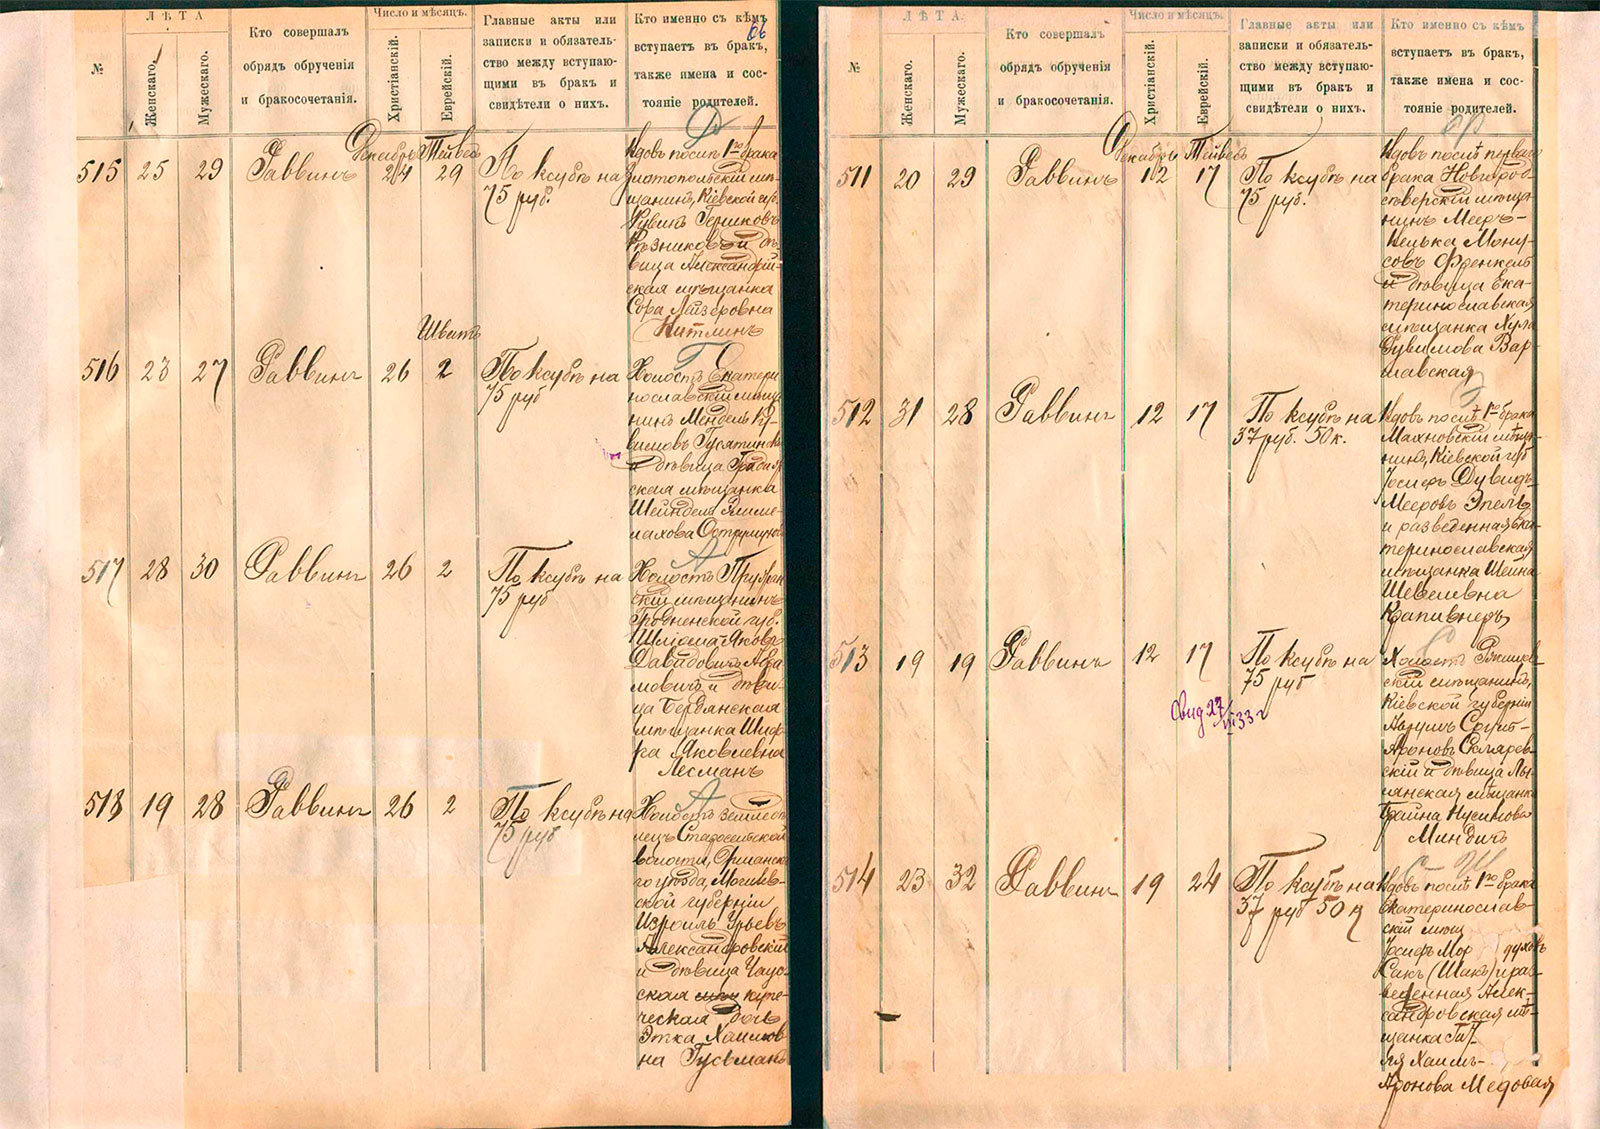 ЛѢТА
Число и мѣсяцъ.
№
Женскаго.
Мужескаго.
Кто совершалъ
обрядъ обрученія
и бракосочетанія.
Христіанскій.
Еврейскій.
Главные акты или
записки и обязатель-
ство между вступаю-
щими въ бракъ и
свидѣтели о нихъ.
Кто именно съ кѣмъ
вступаетъ въ бракъ,
также имена и сос-
тояніе родителей.
66
Декабрь Тейвесъ
515 25 29 Раввинъ 24 29
По ксубѣ на
75 руб.
Вдовъ послѣ 1го брака
Златопольскій мѣ-
щанинъ, Кіевской губ.
Рувинъ
Рѣзниковъ и дѣ-
вица Александрій-
ская мѣщанка
Сора Лазеровна
Шватъ
516 23 27 Раввинъ 26 2
По ксубѣ на
75 руб
Холостъ Екатери
нославскій мѣща
нинъ Мендель Ру-
вимовъ Гусятинскій
и дѣвица
ская мѣщанка
Шейндель Элиме-
лахова
А
517 28 30 Раввинъ 26 2
По ксубѣ на
75 руб
Холостъ
скій мѣщанинъ
Гродненской губ.
Шліома-Яковъ
Давидовичъ Абра
мовичъ и дѣви-
ца Бердянская
мѣщанка Шиф-
ра Яковлевна
Лесманъ
А
518 19 28 Раввинъ 26 2
По ксубѣ на
75 руб
Холостъ землед
лецъ Старосельской
волости, Оршанска
го уѣзда, Могилев-
ской губерніи
Израиль Урьевъ
Александровскій
и дѣвица Чаус-
ская мѣщ купе-
ческая дочь
Этка Хаимов
на Гусьманъ
ЛѢТА.
Число и мѣсяцъ.
№
Женскаго.
Мужескаго.
Кто совершалъ
обрядъ обрученія
и бракосочетанія.
Христіанскій.
Еврейскій.
Главные акты или
записки и обязатель-
ство между вступаю-
щими въ бракъ и
свидѣтели о нихъ.
Кто именно съ кѣмъ
вступаетъ въ бракъ,
также имена и сос-
тояніе родителей.
Ф
Декабрь Тейвесъ
511 20 29 Раввинъ 12 17
По ксубѣ на
75 руб.
Вдовъ послѣ перваго
брака Новгород-
сѣверскій мѣща
нинъ Мееръ-
Нелька Мону-
совъ Френкель
и дѣвица Ека-
теринославская
мѣщанка Хула
Рувимова Вар-
шавская
Э
512 31 28 Раввинъ 12 17
По ксубѣ на
37 руб. 50 к.
Вдовъ послѣ 1го брака
Махновскій мѣща-
нинъ, Кіевской губ
Іосифъ Дувидъ-
Мееровъ Эпель
и разведенная Ека-
теринославская
мѣщанка Шейна
Шевелевна
Крапивнеръ
С
513 19 19 Раввинъ 12 17
По ксубѣ на
75 руб
Свид 27/VII 33 г
Холостъ Ржищев-
скій мѣщанинъ,
Кіевской губерніи
Сруль-
Ароновъ Скляров-
скій и дѣвица
мѣщанка
Брайна Нусимова
Миндичъ
514 23 32 Раввинъ 19 24
По ксубѣ на
37 руб 50 к
С-Ш
Вдовъ послѣ 1го брака
Екатеринослав-
скій мѣщ
Іосифъ Мор духовъ
Сакъ (Шакъ) и раз-
веденная Алек-
сандровская мѣ-
щанка
Хаимъ-
Аронова Медовая